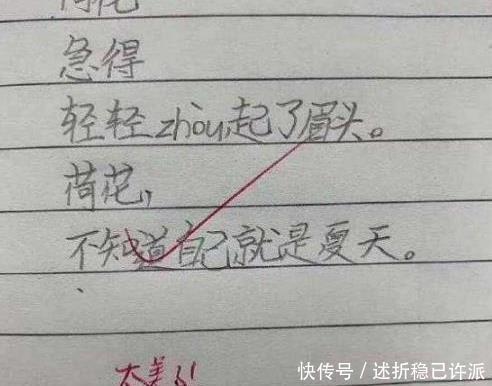 荷花
急得
轻轻zhou起了眉头。
荷花,
不知道自己就是夏天。
太美了!
快传号 / 述折稳已许派